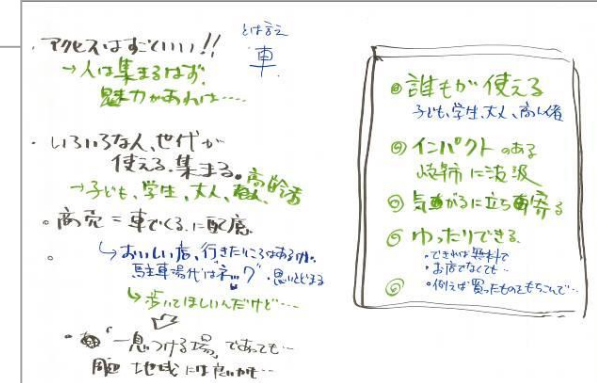 ・アクセスはすごくいい!!
とは言え
車
→人は集まるはず。
魅力があれば‥‥
・いろいろな人、世代が
使える、集まる。
→子ども、学生、大人、高齢者
・商売=車でくる。に配慮
↳おいしい店、行きたいところはあるが、
駐車場代はネック。思いとどまる
↳歩いてほしいんだけど‥‥
・「一息つける場」であっても‥
地域には良いかも‥
◎誰もが使える
子ども、学生、大人、高れい者
◎インパクトのある
岐阜市に波及
◎気がるに立ち寄る
◎ゆったりできる
・できれば無料で
・お店でなくても‥
・例えば買ったものをもちこんで‥
◎